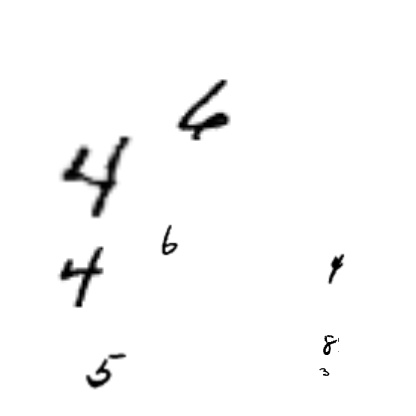 6
4
6
4 4
8
5 3